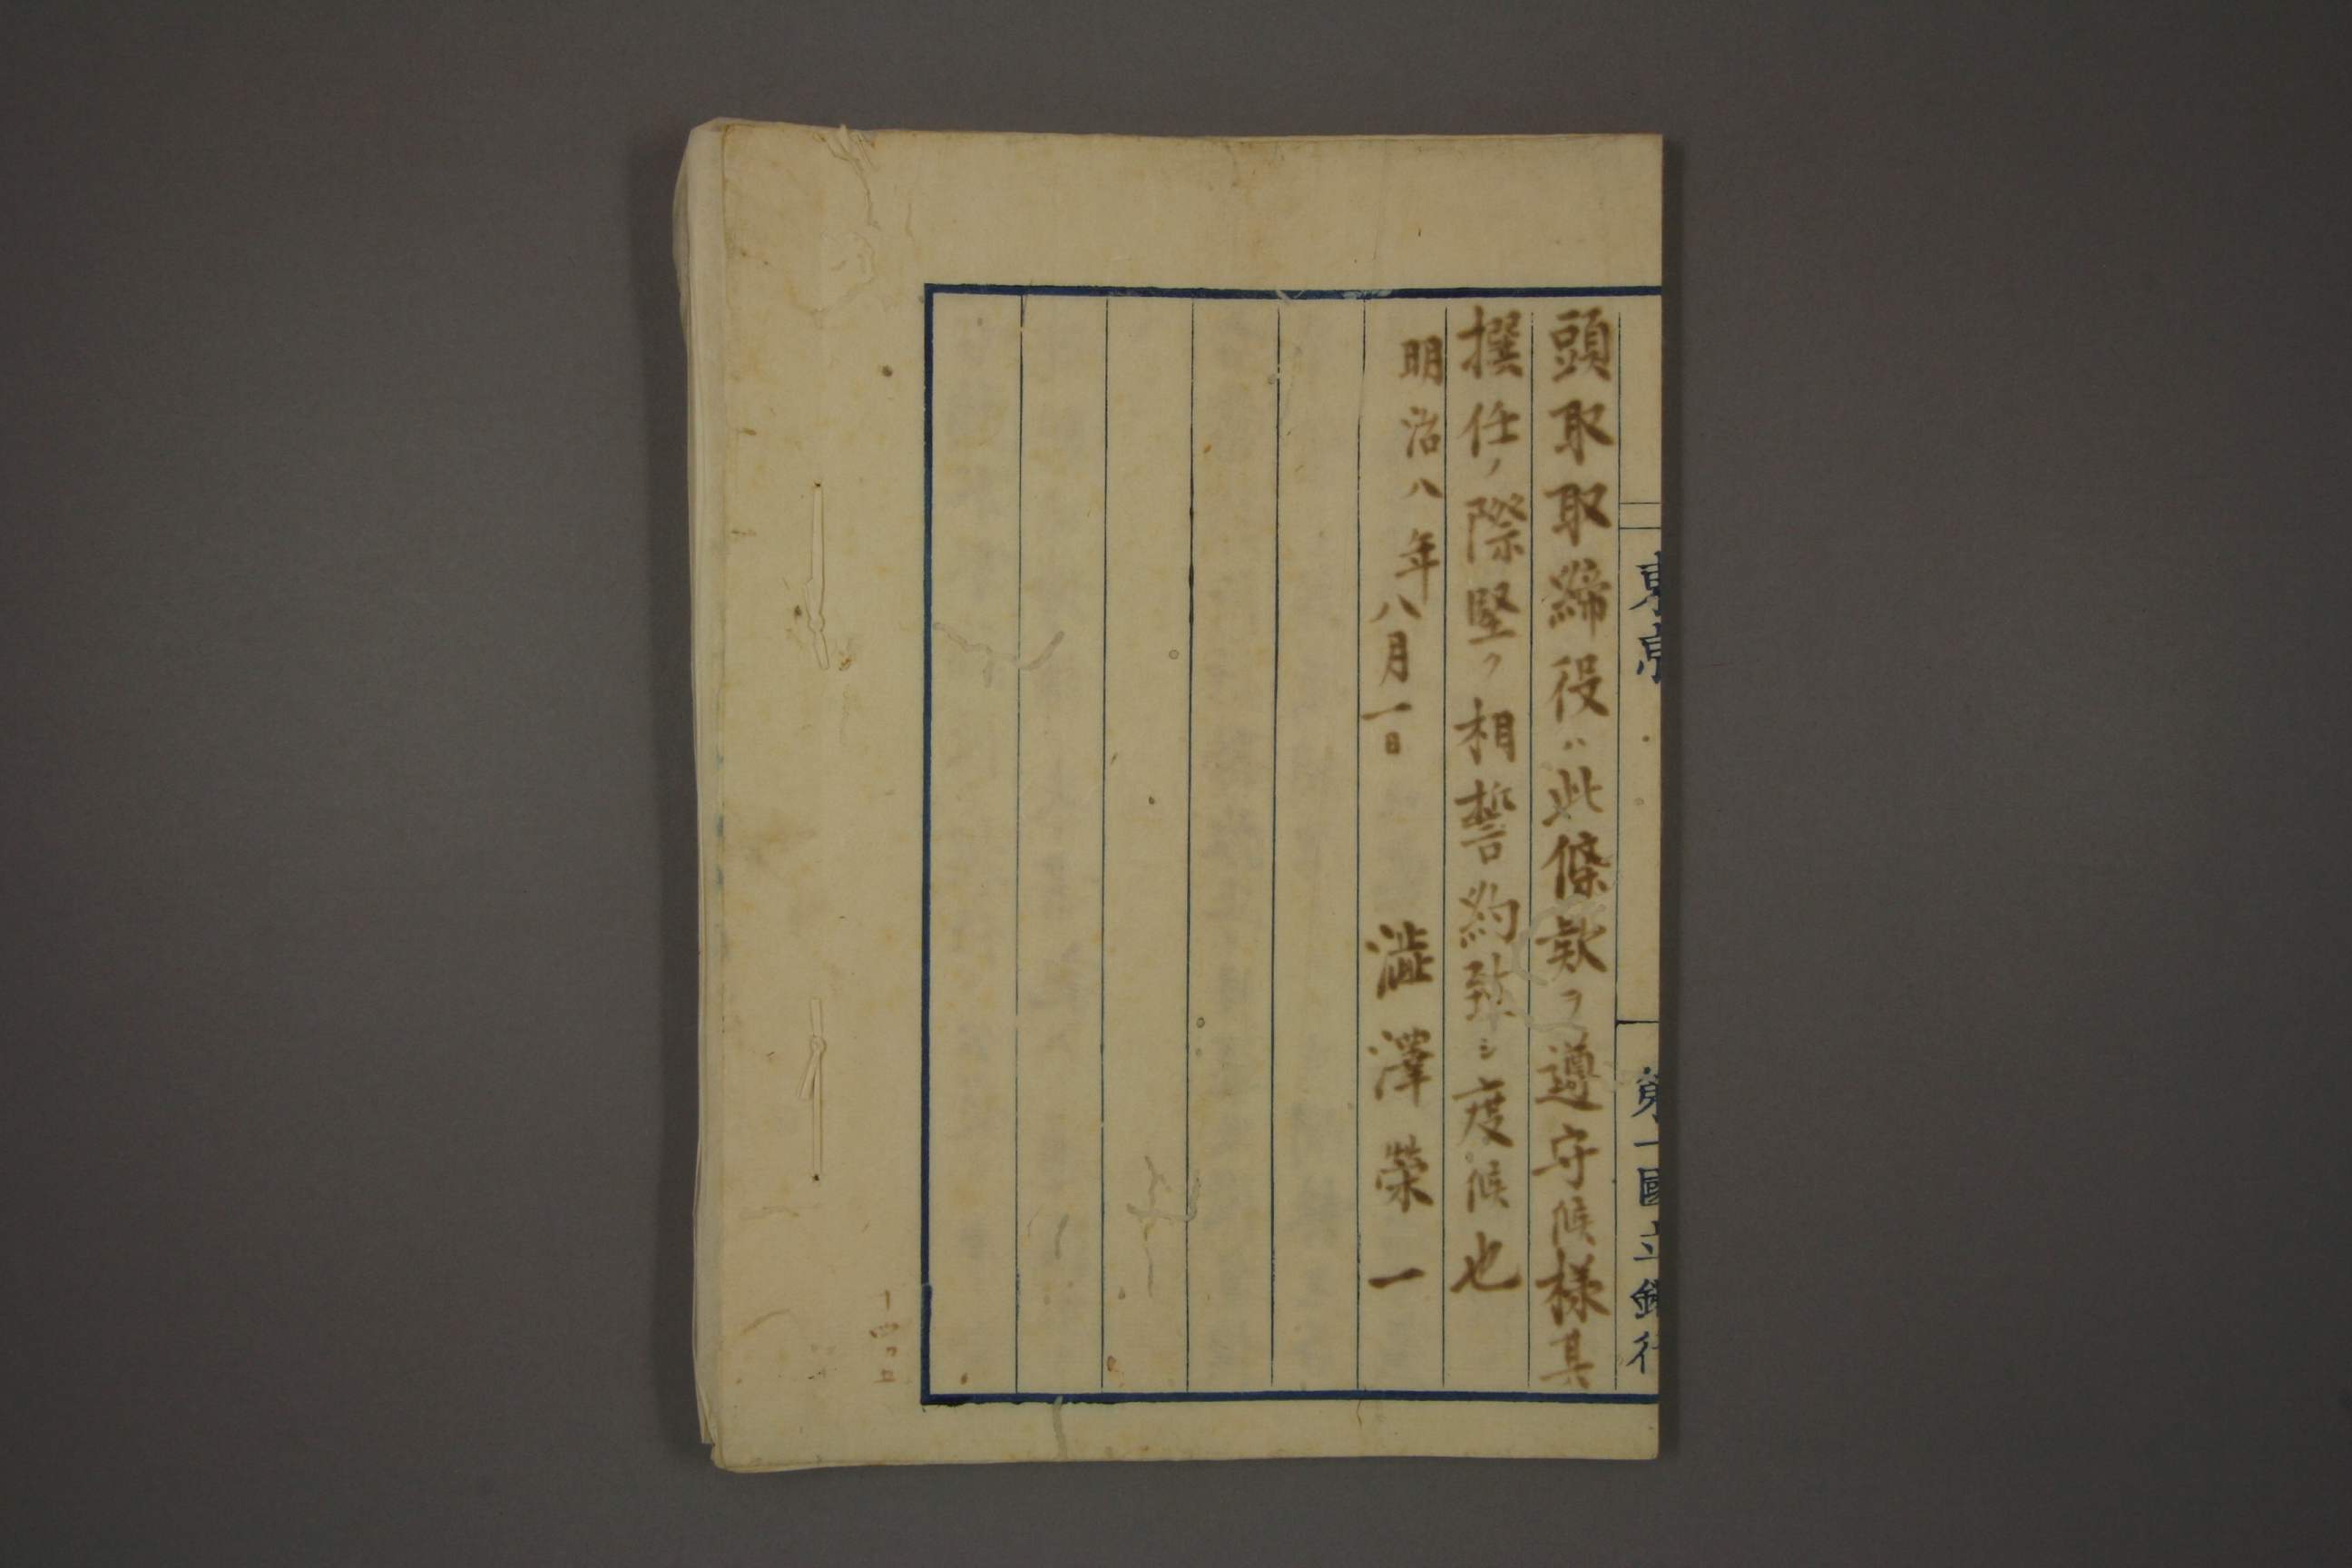 東京
第一國立銀行
頭取取締役ハ此條款ヲ遵守候様其
撰任ノ際堅ク相誓約致シ度候也
明治八年八月一日
澁澤榮一